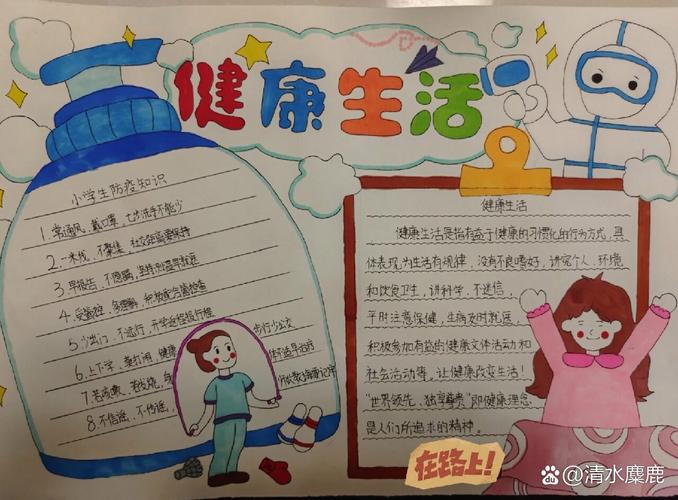 健康生活
小学生防疫知识
1.常通风、戴口罩,七步洗手不能少
2.一米线、不聚集,社交距离要保持
3.早报告、不隐瞒,
4.受监控、多理解,积极配合
5.少出门、不远行,开学返校报行程
6.上下学、莫打闹,健康
出行少公交
7.若咳嗽、若发烧,
体温早治疗
8.不信谣、不传谣,
健康生活
健康生活是指有益于健康的习惯化的行为方式,具
体表现为生活有规律,没有不良嗜好,讲究个人、环境
和饮食卫生,讲科学、不迷信,
平时注意保健,生病及时就医,
积极参加有益的健康文体活动和
社会活动等。让健康改变生活!
"世界领先、独享尊贵"即健康理念
是人们所追求的精神。
在路上!
清水麋鹿